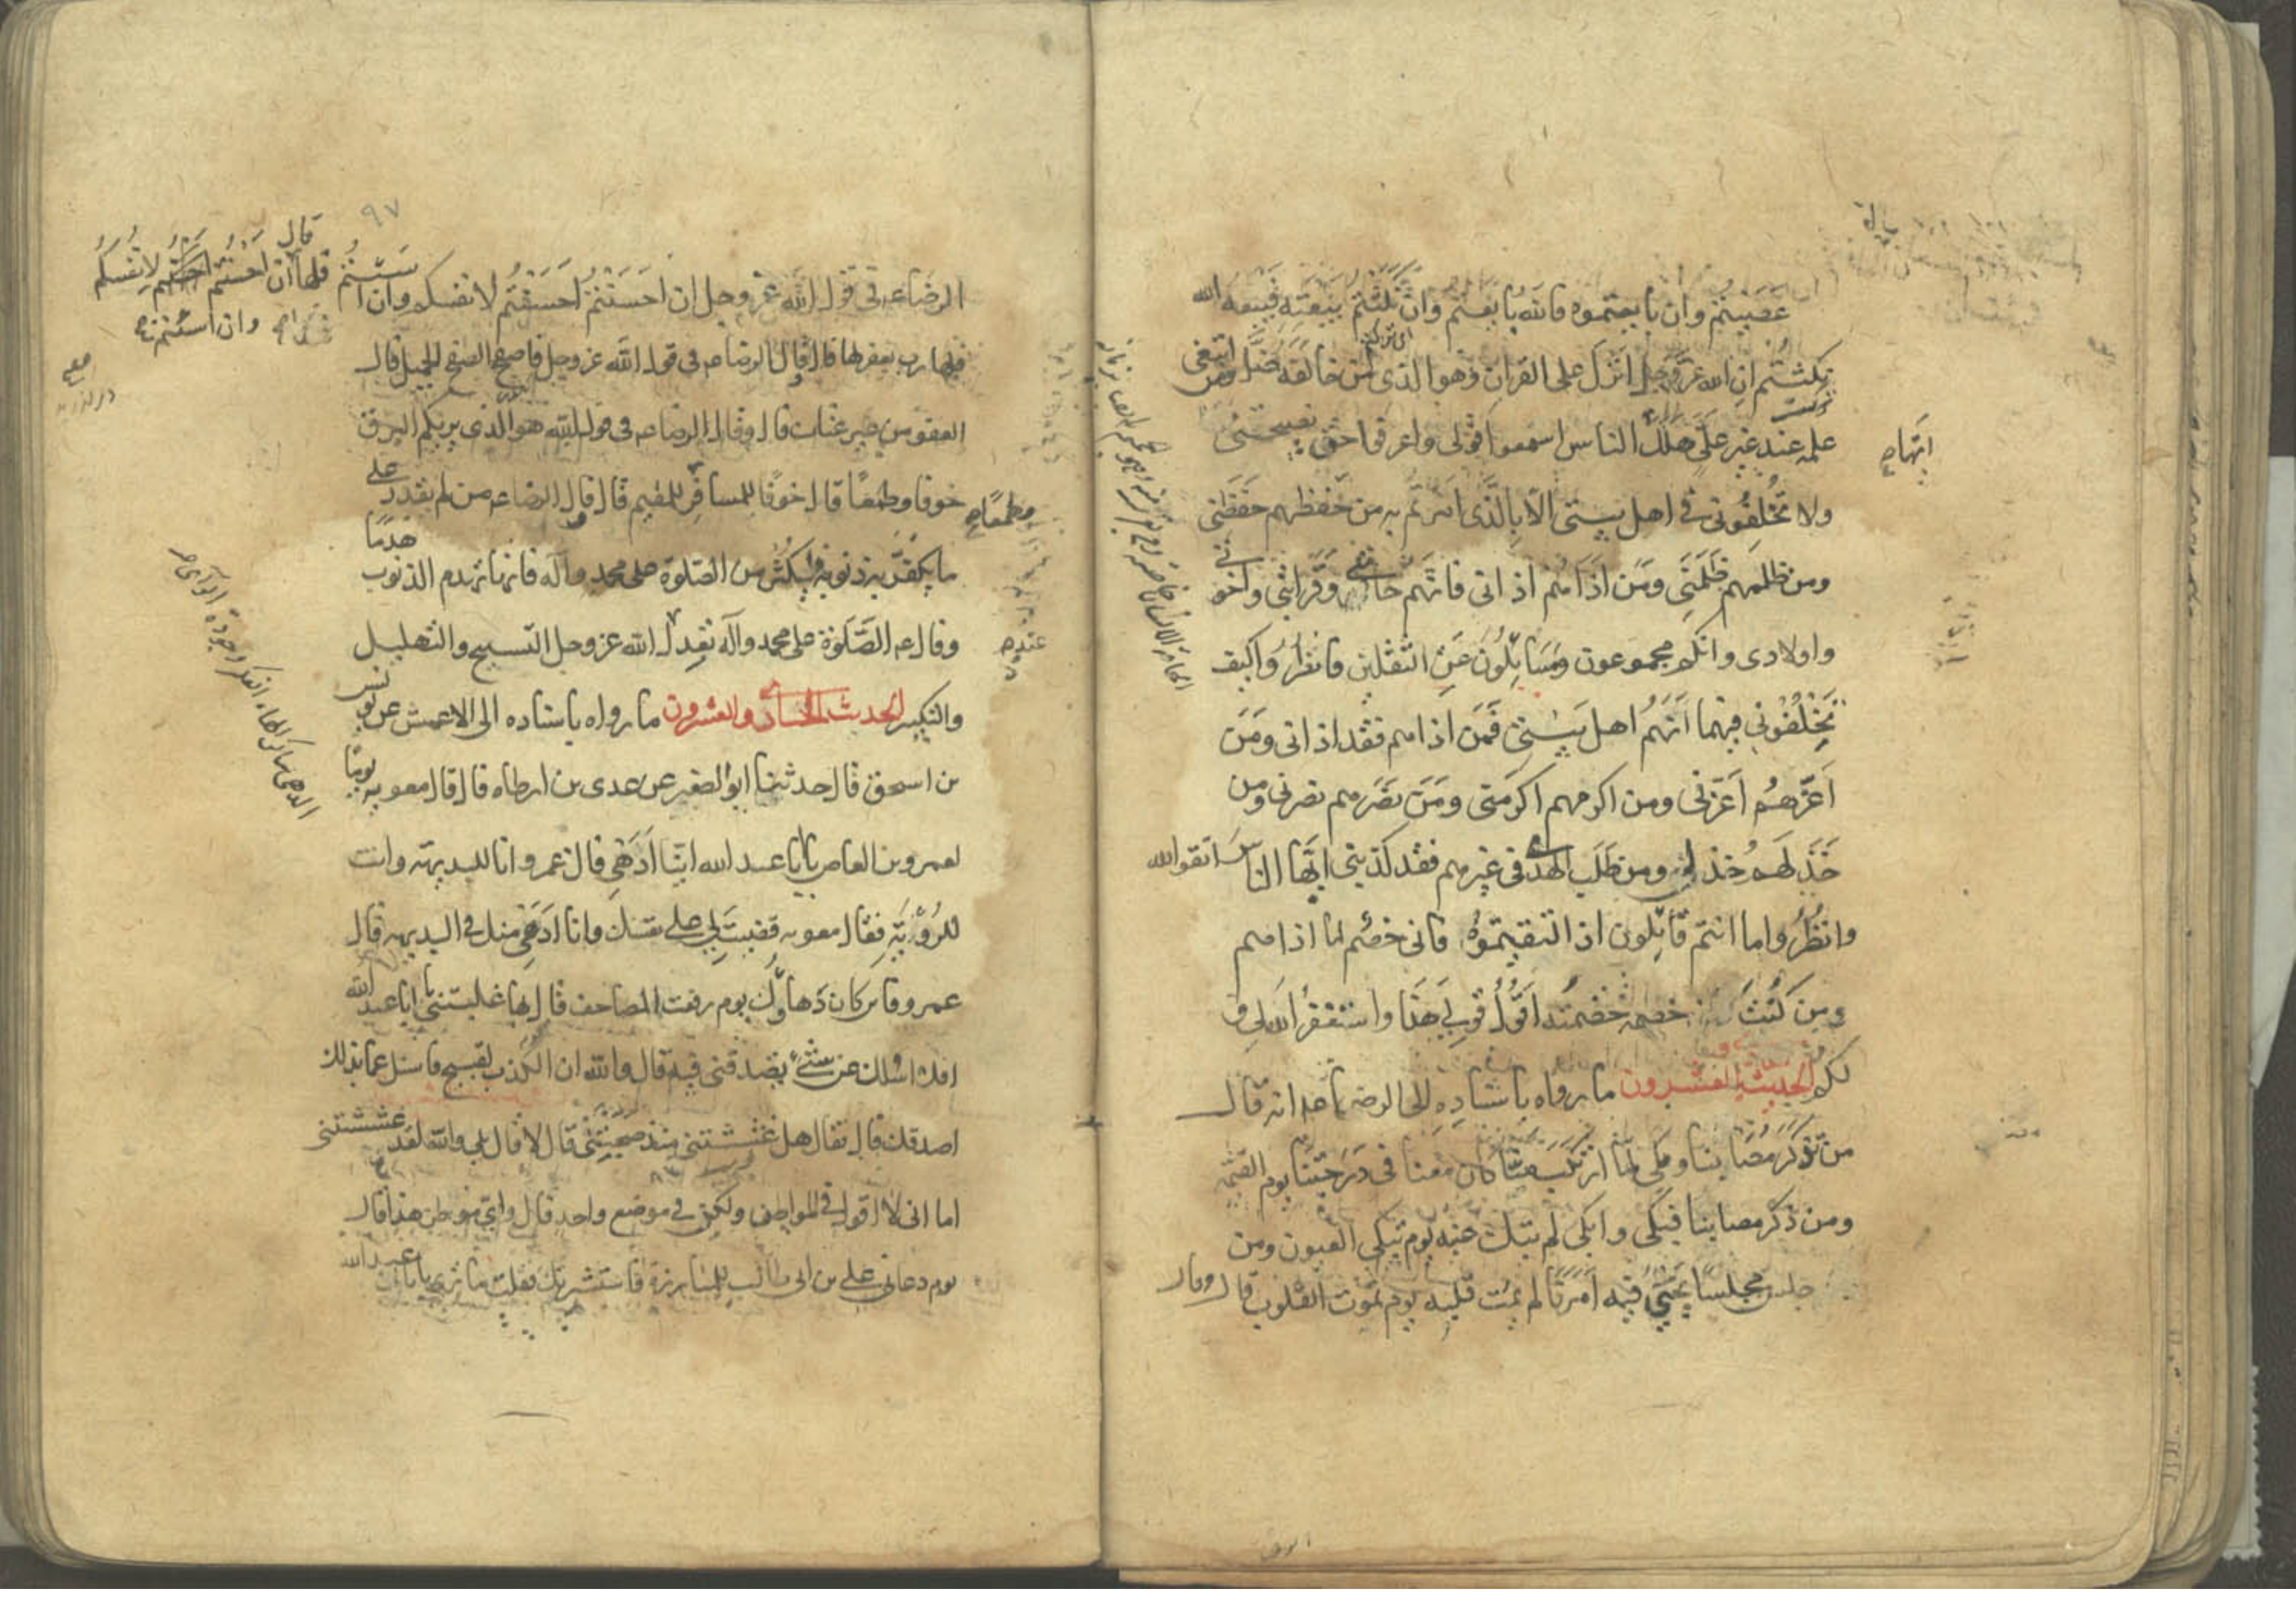 عصيتم وان بايعتموه فالله بايعتم وان نكثتم بيعته فبيعة الله
نكثتم ان الله عز وجل انزل على القران وهو الذى من خالفه ضل ومن ابتغى
علمه عند غير على هلك ايها الناس اسمعوا قولى واعرفوا حق نصيحتى
ولا تخلفونى فى اهل بيتى الا بالذى امرتم به من حفظهم حفظنى
ومن ظلمهم ظلمنى ومن اذاهم اذانى فانهم حامتى وقرابتى واخوتى
واولادى وانكم مجموعون ومسائلون عن الثقلين فانظروا كيف
تخلفونى فيهما انهم اهل بيتى فمن اذاهم فقد اذانى ومن
اعزهم اعزنى ومن اكرمهم اكرمنى ومن نصرهم نصرنى ومن
خذلهم خذلنى ومن طلب الهدى فى غيرهم فقد كذبنى ايها الناس اتقوا الله
وانظروا ما انتم قائلون اذا لقيتموه فانى خصم لمن اذاهم
ومن كنت خصمه خصمته اقول قولى هذا واستغفر الله لى و
لكم الحديث العشرون ما رواه باسناده الى الرضا انه قال
من تذكر مصابنا وبكى لما ارتكب منا كان معنا فى درجتنا يوم القيمة
ومن ذكر مصابنا فبكى وابكى لم تبك عينه يوم تبكى العيون ومن
جلس مجلسا يحيى فيه امرنا لم يمت قلبه يوم تموت القلوب قال وقال
ايها
٩٧
الرضا عم فى قول الله عز وجل ان احسنتم احسنتم لانفسكم وان اسئتم
فلها رب يغفر لها قال قال الرضا عم فى قول الله عز وجل فاصفح الصفح الجميل قال
العفو من غير عتاب قال وقال الرضا عم فى قول الله هو الذى يريكم البرق
خوفا وطمعا قال خوفا للمسافر للمقيم قال قال الرضا عم من لم يقدر على
ما يكفر به ذنوبه فليكثر من الصلوة على محمد وآله فانها تهدم الذنوب هدما
وقال عم الصلوة على محمد وآله تعدل الله عز وجل التسبيح والتهليل
والتكبير الحديث الحادى والعشرون ما رواه باسناده الى الاعمش عن يونس
بن اسحق قال حدثنا ابو الصقر عن عدى بن ارطاه قال قال معويه يوما
لعمرو بن العاص يابا عبد الله اينا ادهى قال عمرو انا للبديهة وانت
للروية فقال معويه قضيت لى على نفسك وانا ادهى منك فى البديهه قال
عمرو فاين كان دهاؤك يوم رفعت المصاحف قال بها غلبتنى يابا عبد الله
افلا اسئلك عن شىء تصدقنى فيه قال والله ان الكذب لقبيح فاسئل عما بدا لك
اصدقك قال فقال هل غششتنى منذ نصحتنى قال لا قال بلى والله لقد غششتنى
اما انى لا اقول فى المواطن ولكن فى موضع واحد قال واى موطن هذا قال
يوم دعانى على بن ابى طالب للمبارزة فاستشرتك فقلت ما ترى يابا عبد الله
قال
ان احسنتم احسنتم لانفسكم
وان اسئتم
وطمعا
عند